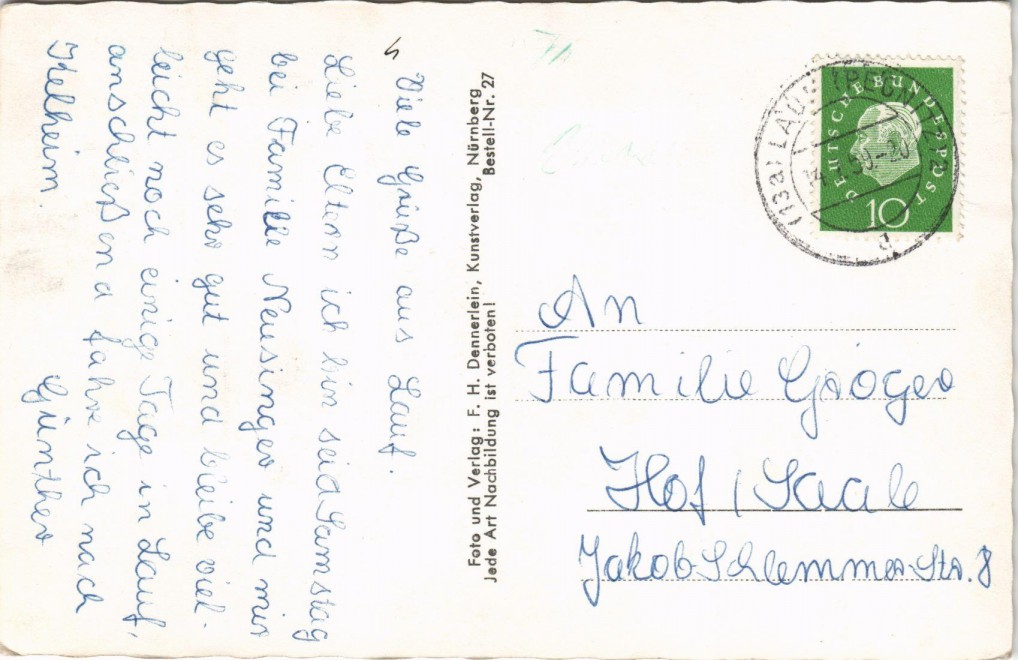 Viele Grüße aus Lauf.
Liebe Eltern ich bin seid Samstag
bei Familie Neusinger und mir
geht es sehr gut und bleibe viel-
leicht noch einige Tage in Lauf,
anschließend fahre ich nach
Kelheim.
Günther
Foto und Verlag: F. H. Dennerlein, Kunstverlag, Nürnberg
Jede Art Nachbildung ist verboten! Bestell-Nr. 27
DEUTSCHE BUNDESPOST
10
(13a) LAUF (PEGNITZ) 2
An
Familie Gröger
Hof / Saale
Jakob-Schlemmer-Str. 8